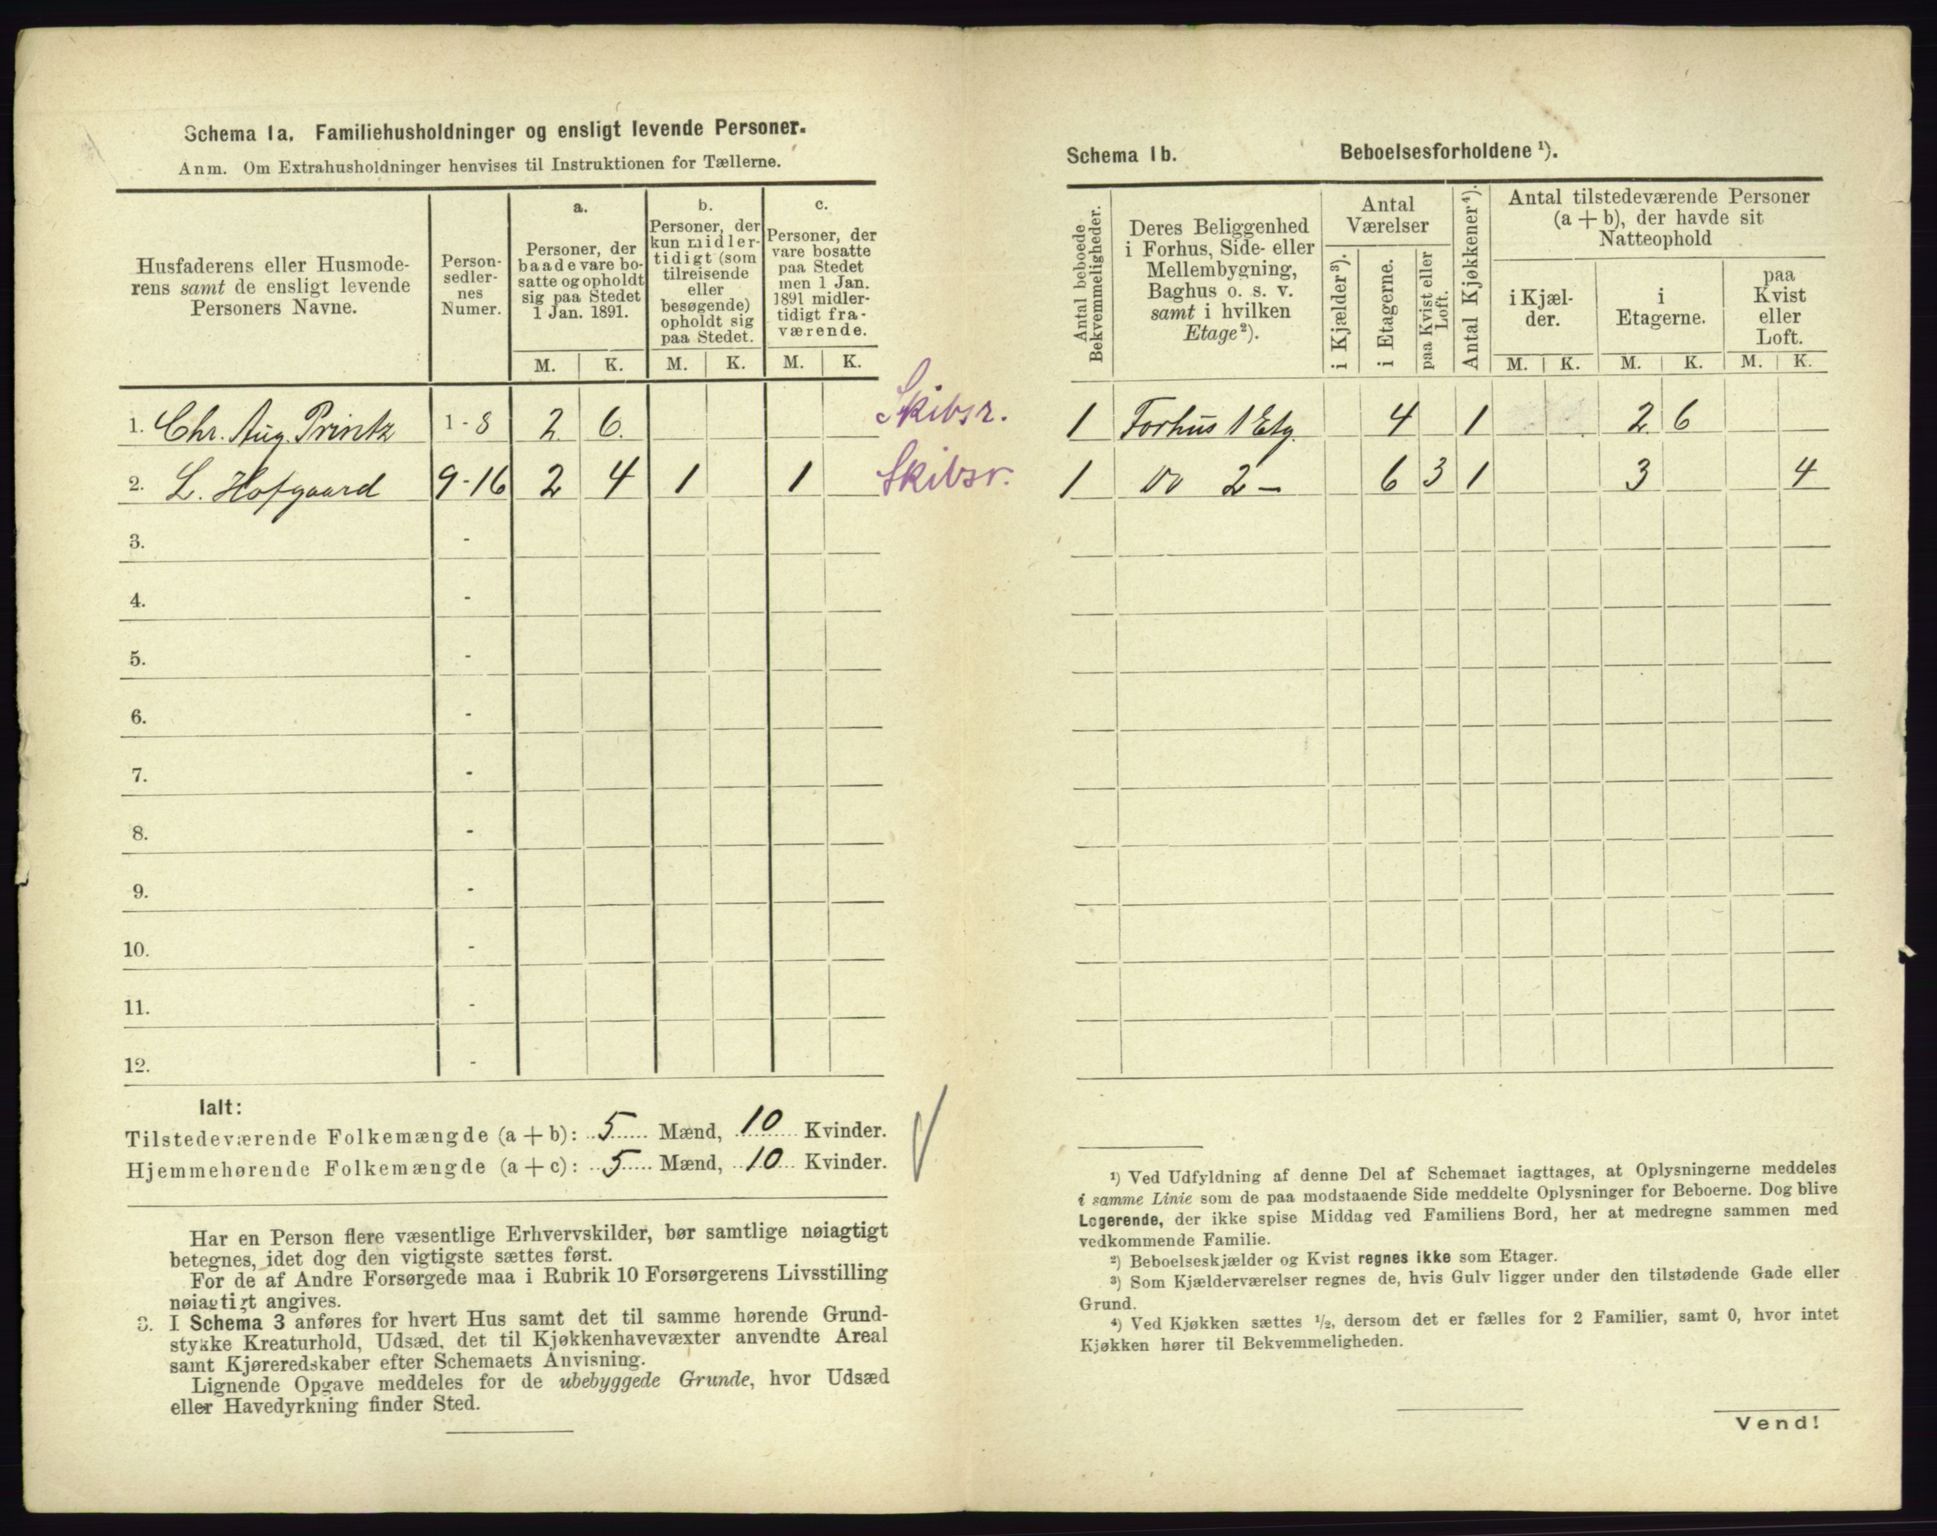 Schema 1a. Familiehusholdninger og ensligt levende Personer.
Anm. Om Extrahusholdninger henvises til Instruktionen for Tællerne.
Husfaderens eller Husmoderens samt de ensligt levende Personers Navne.
Personsedlernes Numer.
a.
Personer, der baade vare bosatte og opholdt sig paa Stedet 1 Jan. 1891.
b.
Personer, der kun midlertidigt (som tilreisende eller besøgende) opholdt sig paa Stedet.
c.
Personer, der vare bosatte paa Stedet men 1 Jan. 1891 midlertidigt fraværende.
M. K. M. K. M. K.
1. Chr. Aug. Printz 1-8 2 6. Skibsr.
2. L. Hofgaard 9-16 2 4 1 1 Skibsr.
3. -
4. -
5. -
6. -
7. -
8. -
9. -
10. -
11. -
12. -
Ialt:
Tilstedeværende Folkemængde (a + b): 5 Mænd, 10 Kvinder.
Hjemmehørende Folkemængde (a + c): 5 Mænd, 10 Kvinder.
Har en Person flere væsentlige Erhvervskilder, bør samtlige nøiagtigt
betegnes, idet dog den vigtigste sættes først.
For de af Andre Forsørgede maa i Rubrik 10 Forsørgerens Livsstilling
nøiagtigt angives.
3. I Schema 3 anføres for hvert Hus samt det til samme hørende Grund-
stykke Kreaturhold, Udsæd, det til Kjøkkenhavevæxter anvendte Areal
samt Kjøreredskaber efter Schemaets Anvisning.
Lignende Opgave meddeles for de ubebyggede Grunde, hvor Udsæd
eller Havedyrkning finder Sted.
Schema 1b. Beboelsesforholdene ¹).
Antal beboede Bekvemmeligheder.
Deres Beliggenhed i Forhus, Side- eller Mellembygning, Baghus o. s. v. samt i hvilken Etage²).
Antal Værelser
i Kjælder³).
i Etagerne.
paa Kvist eller Loft.
Antal Kjøkkener⁴).
Antal tilstedeværende Personer (a + b), der havde sit Natteophold
i Kjælder.
i Etagerne.
paa Kvist eller Loft.
M. K. M. K. M. K.
1 Forhus 1 Etg. 4 1 2 6
1 do 2 - 6 3 1 3 4
¹) Ved Udfyldning af denne Del af Schemaet iagttages, at Oplysningerne meddeles
i samme Linie som de paa modstaaende Side meddelte Oplysninger for Beboerne. Dog blive
Logerende, der ikke spise Middag ved Familiens Bord, her at medregne sammen med
vedkommende Familie.
²) Beboelseskjælder og Kvist regnes ikke som Etager.
³) Som Kjælderværelser regnes de, hvis Gulv ligger under den tilstødende Gade eller
Grund.
⁴) Ved Kjøkken sættes ½, dersom det er fælles for 2 Familier, samt 0, hvor intet
Kjøkken hører til Bekvemmeligheden.
Vend!